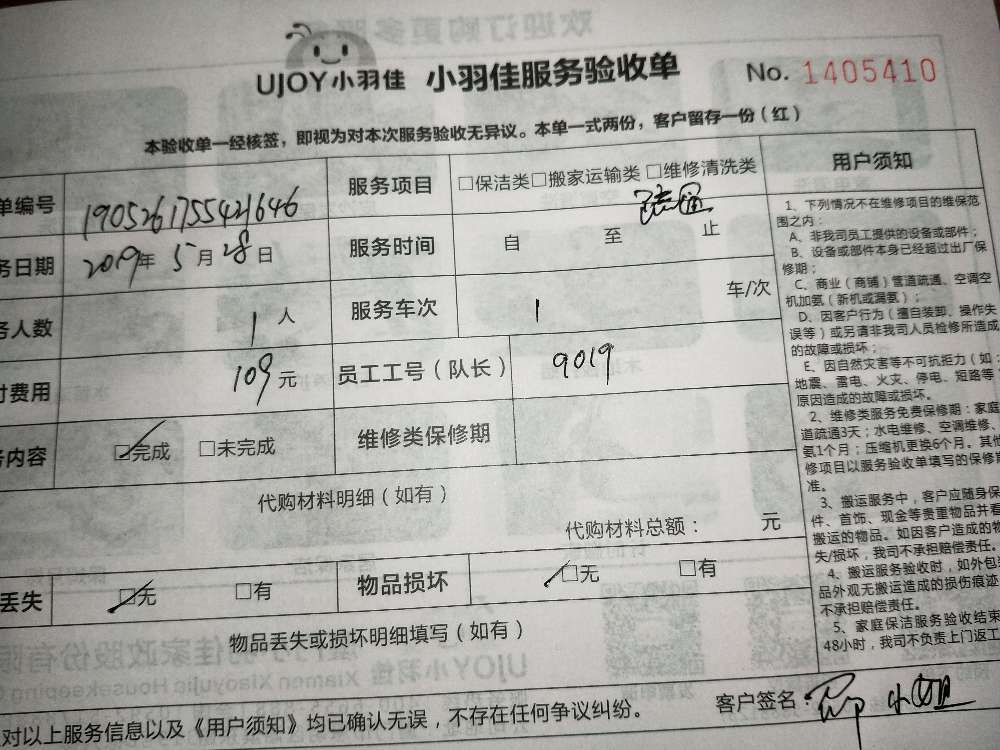 UJOY小羽佳 小羽佳服务验收单 No. 1405410
本验收单一经核签，即视为对本次服务验收无异议。本单一式两份，客户留存一份（红）
单编号 1905261755421646 服务项目 □保洁类□搬家运输类 □维修清洗类
务日期 2019年 5月 28日 服务时间 自 至 止
务人数 1 人 服务车次 1 车/次
付费用 109元 员工工号（队长） 9019
务内容 □完成 □未完成 维修类保修期
代购材料明细（如有）
代购材料总额： 元
丢失 □无 □有 物品损坏 □无 □有
物品丢失或损坏明细填写（如有）
对以上服务信息以及《用户须知》均已确认无误，不存在任何争议纠纷。 客户签名：
用户须知
1、下列情况不在维修项目的维保范
围之内：
A、非我司员工提供的设备或部件；
B、设备或部件本身已经超过出厂保
修期；
C、商业（商铺）管道疏通、空调空
机加氨（新机或漏氨）；
D、因客户行为（擅自装卸、操作失
误等）或另请非我司人员检修所造成
的故障或损坏；
E、因自然灾害等不可抗拒力（如：
地震、雷电、火灾、停电、短路等
原因造成的故障或损坏。
2、维修类服务免费保修期：家庭
道疏通3天；水电维修、空调维修、
氨1个月；压缩机更换6个月。其他
修项目以服务验收单填写的保修
准。
3、搬运服务中，客户应随身保
件、首饰、现金等贵重物品并看
搬运的物品。如因客户造成的物
失/损坏，我司不承担赔偿责任。
4、搬运服务验收时，如外包装
品外观无搬运造成的损伤痕迹
不承担赔偿责任。
5、家庭保洁服务验收结束
48小时，我司不负责上门返工